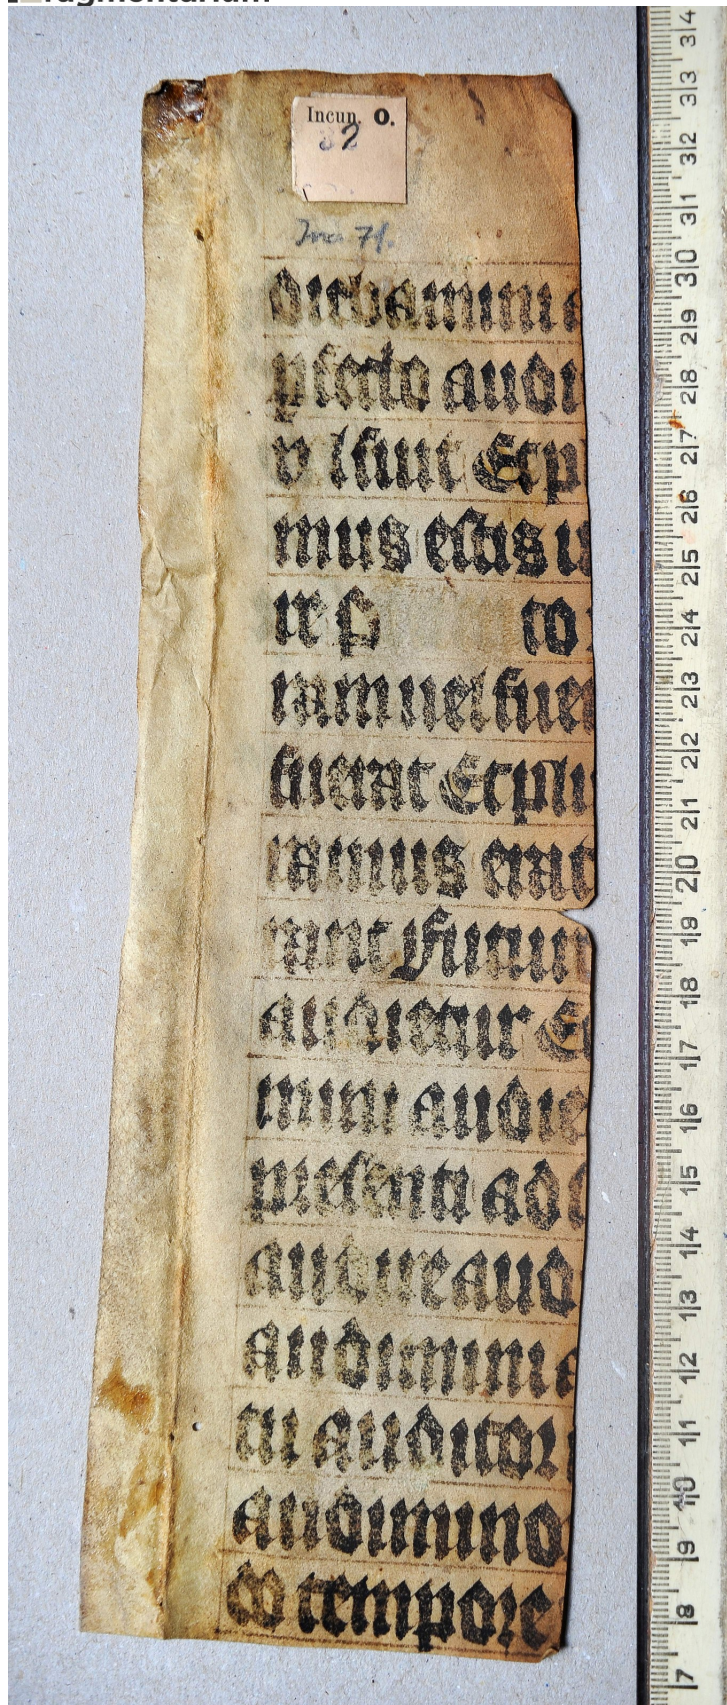 ragmentarium
Incun. O.
32
Inc 71.
diebamini a
pfecto audi
v l fuit Et p
mus estis u
re p to
ramini uel fue
fuerat Et plu
ramus erat
runt Futur
audietur Et
mini audie
presenti ad s
audire aud
audimini a
tu auditor
audimino
do tempore
34
33
32
31
30
29
28
27
26
25
24
23
22
21
20
19
18
17
16
15
14
13
12
11
10
9
8
7